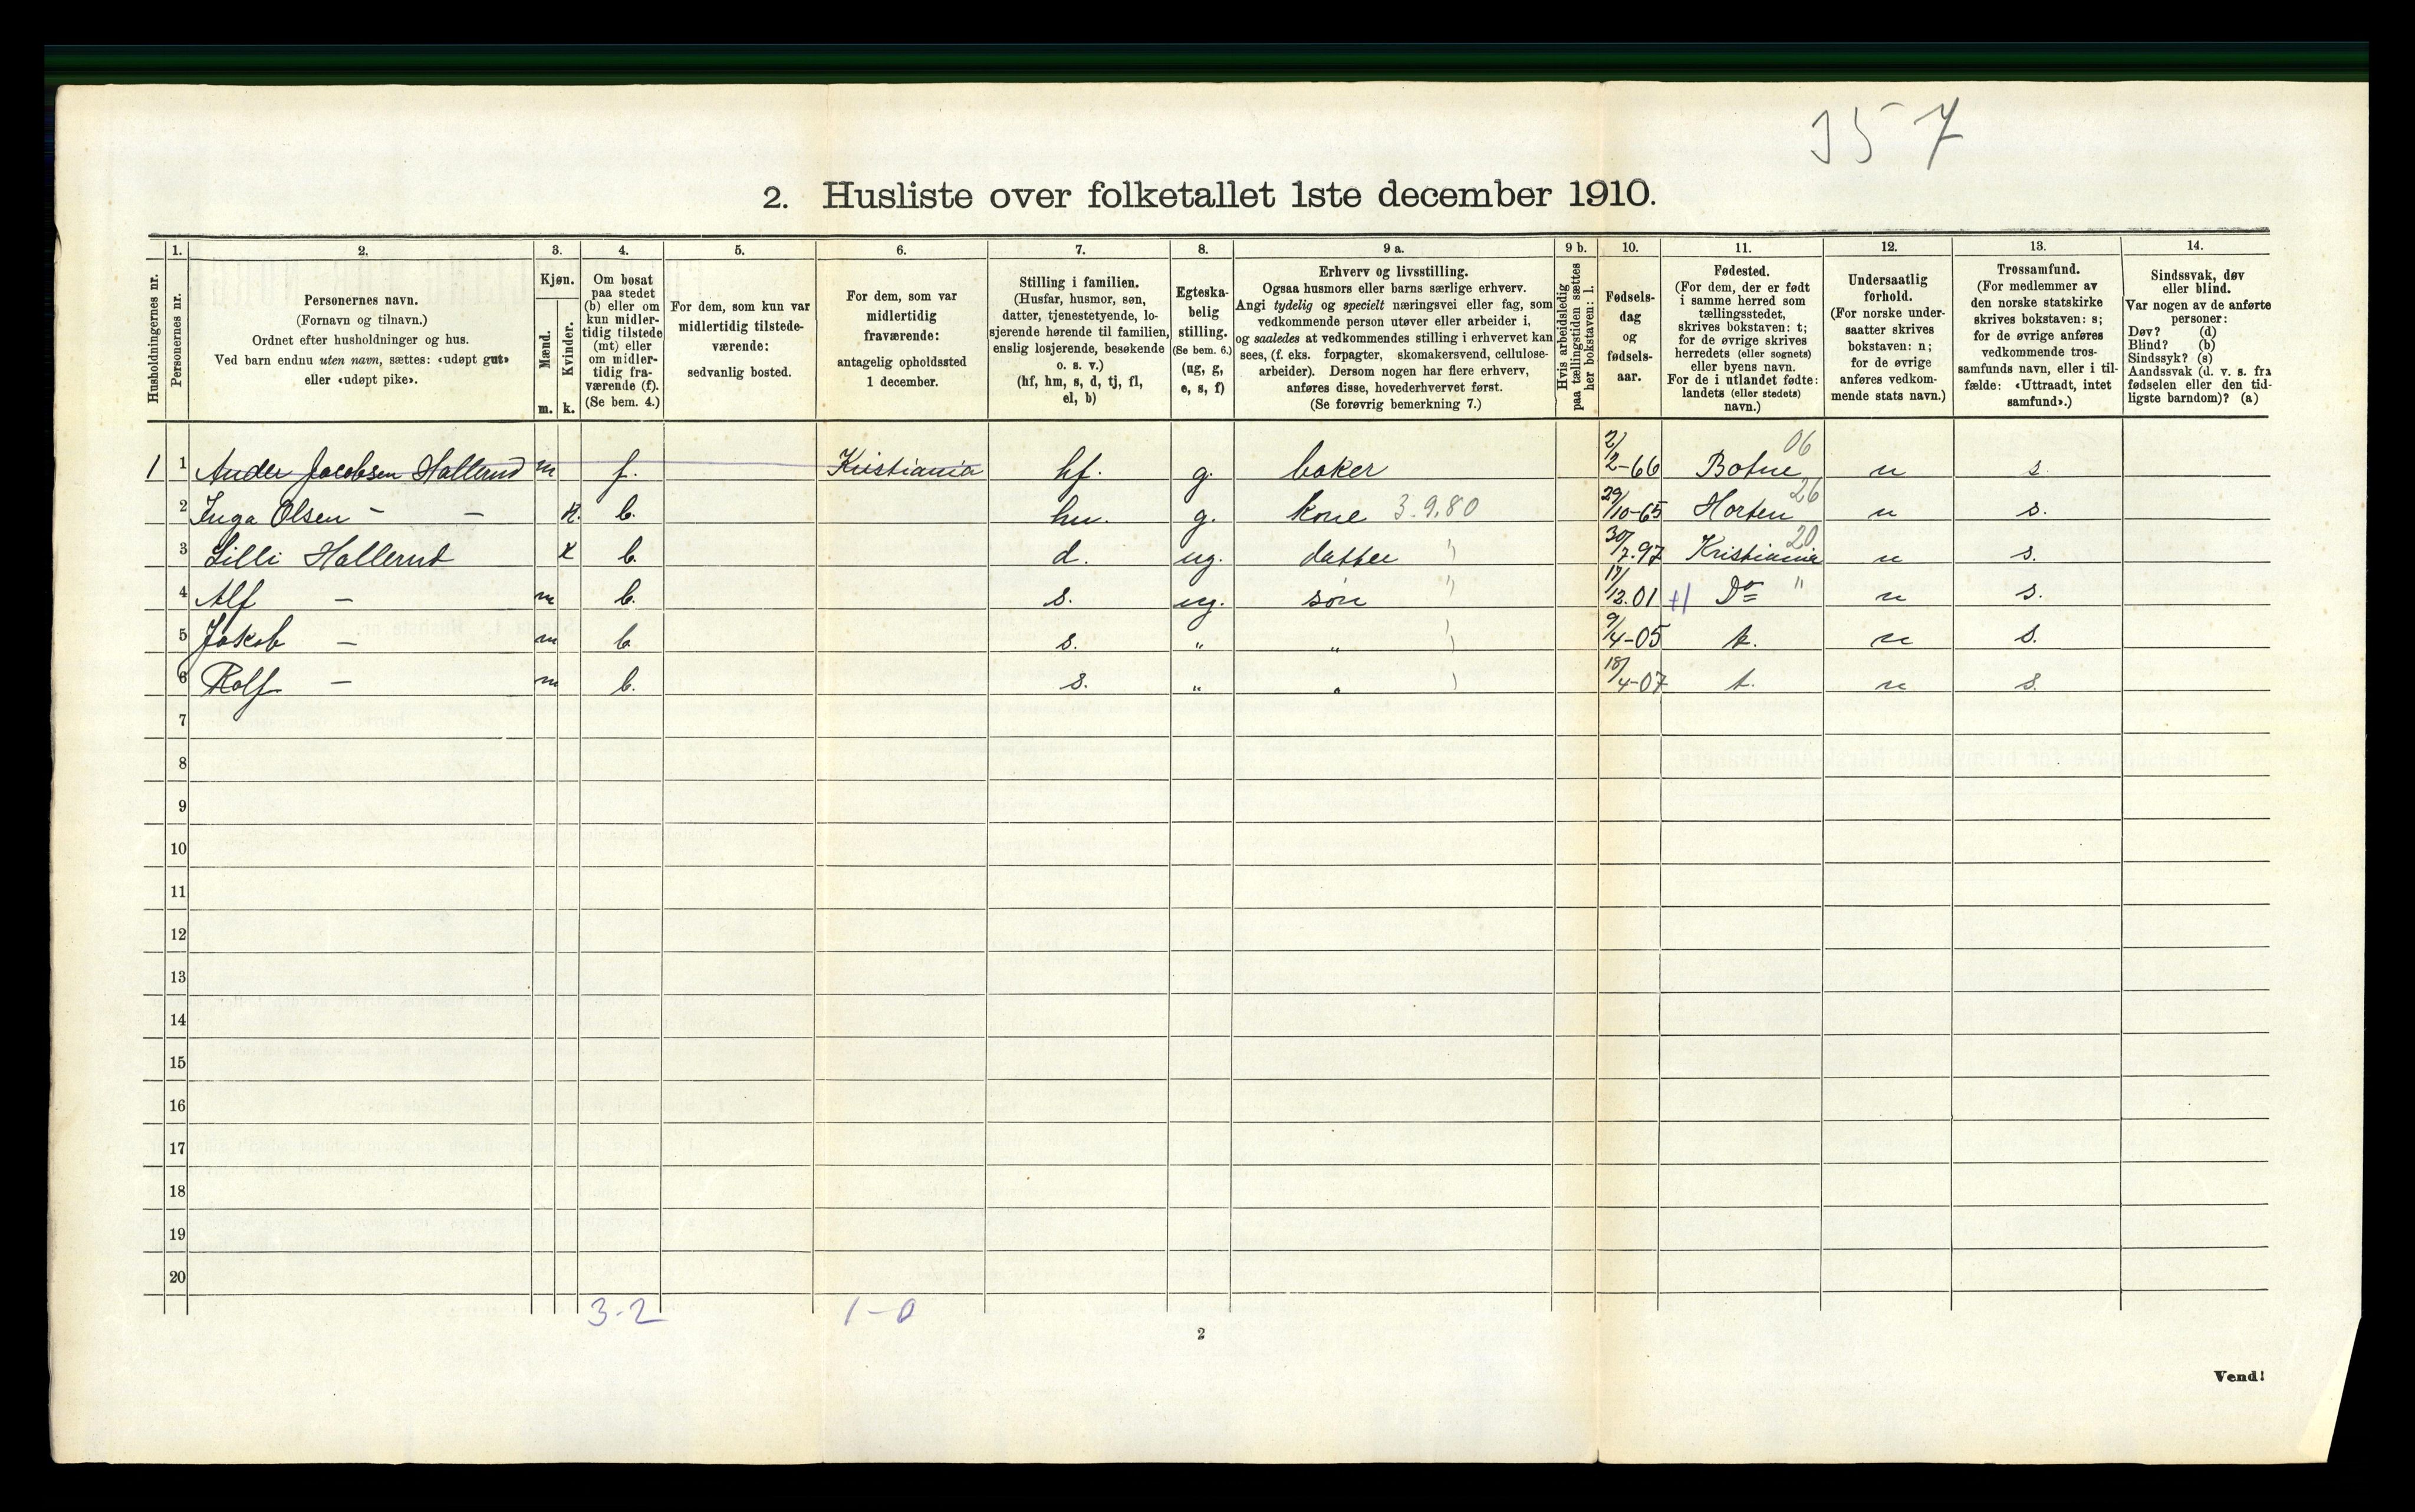 357
2. Husliste over folketallet 1ste december 1910.
Husholdningernes nr.
1.
Personernes nr.
2.
Personernes navn.
(Fornavn og tilnavn.)
Ordnet efter husholdninger og hus.
Ved barn endnu uten navn, sættes: «udøpt gut»
eller «udøpt pike».
3.
Kjøn.
Mænd.
Kvinder.
m. k.
4.
Om bosat
paa stedet
(b) eller om
kun midler-
tidig tilstede
(mt) eller
om midler-
tidig fra-
værende (f).
(Se bem. 4.)
5.
For dem, som kun var
midlertidig tilstede-
værende:
sedvanlig bosted.
6.
For dem, som var
midlertidig
fraværende:
antagelig opholdssted
1 december.
7.
Stilling i familien.
(Husfar, husmor, søn,
datter, tjenestetyende, lo-
sjerende hørende til familien,
enslig losjerende, besøkende
o. s. v.)
(hf, hm, s, d, tj, fl,
el, b)
8.
Egteska-
belig
stilling.
(Se bem. 6.)
(ug, g,
e, s, f)
9 a.
Erhverv og livsstilling.
Ogsaa husmors eller barns særlige erhverv.
Angi tydelig og specielt næringsvei eller fag, som
vedkommende person utøver eller arbeider i,
og saaledes at vedkommendes stilling i erhvervet kan
sees, (f. eks. forpagter, skomakersvend, cellulose-
arbeider). Dersom nogen har flere erhverv,
anføres disse, hovederhvervet først.
(Se forøvrig bemerkning 7.)
9 b.
Hvis arbeidsledig
paa tællingstiden sættes
her bokstaven: l.
10.
Fødsels-
dag
og
fødsels-
aar.
11.
Fødested.
(For dem, der er født
i samme herred som
tællingsstedet,
skrives bokstaven: t;
for de øvrige skrives
herredets (eller sognets)
eller byens navn.
For de i utlandet fødte:
landets (eller stedets)
navn.)
12.
Undersaatlig
forhold.
(For norske under-
saatter skrives
bokstaven: n;
for de øvrige
anføres vedkom-
mende stats navn.)
13.
Trossamfund.
(For medlemmer av
den norske statskirke
skrives bokstaven: s;
for de øvrige anføres
vedkommende tros-
samfunds navn, eller i til-
fælde: «Uttraadt, intet
samfund».)
14.
Sindssvak, døv
eller blind.
Var nogen av de anførte
personer:
Døv? (d)
Blind? (b)
Sindssyk? (s)
Aandssvak (d. v. s. fra
fødselen eller den tid-
ligste barndom)? (a)
1 1 Ander Jacobsen Hallerud m f. Kristiania hf. g. baker 2/2-66 Botne 06 n s.
2 Inga Olsen - - k. b. hu. g. kone 3.9.80 29/10-65 Horten 26 n s.
3 Lilli Hallerud x b. d. ug. datter " 30/7.97 Kristiania 20 n s.
4 Alf - m b. s. ug. søn " 17/12.01 +1 Do " n s.
5 Jakob - m b. s. " " 9/4-05 t. n s.
6 Rolf - m b. s. " " 18/4-07 t. n s.
7
8
9
10
11
12
13
14
15
16
17
18
19
20
3-2 1-0
2
Vend!